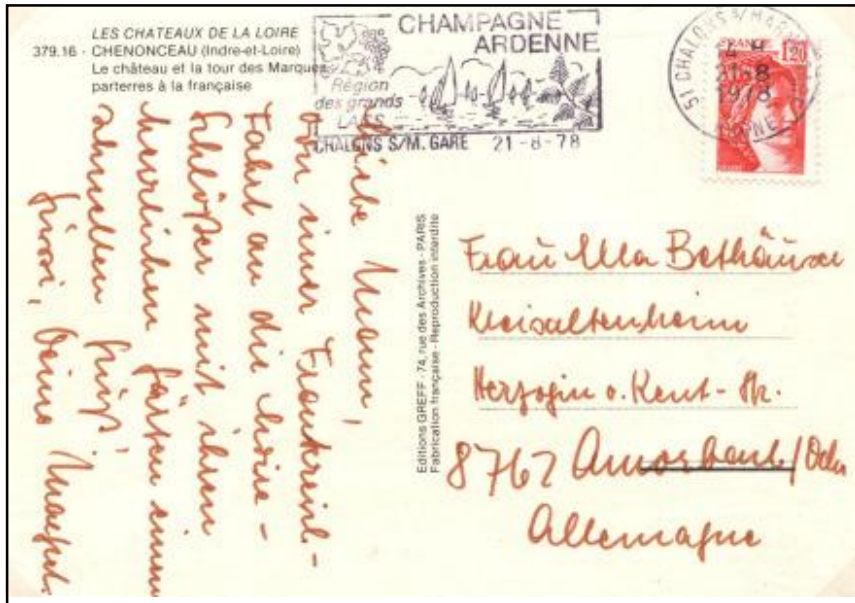 LES CHATEAUX DE LA LOIRE
379.16 - CHENONCEAU (Indre-et-Loire)
Le château et la tour des Marques
parterres à la française
CHAMPAGNE
ARDENNE
Région
des grands
LACS
CHALONS S/M. GARE 21-8-78
51 CHALONS S/MARNE
21-8
1978
FRANCE 1,20
Liebe Mami,
von einer Frankreich-
Fahrt an die Loire-
Schlößer mit ihren
herrlichen Gärten einen
schnellen Gruß,
Deine
Editions GREFF - 74, rue des Archives - PARIS
Fabrication française - Reproduction interdite
Frau Ella Bethäuser
Kreisaltenheim
Herzogin v. Kent-Str.
8762 Amorbach/Odw
Allemagne